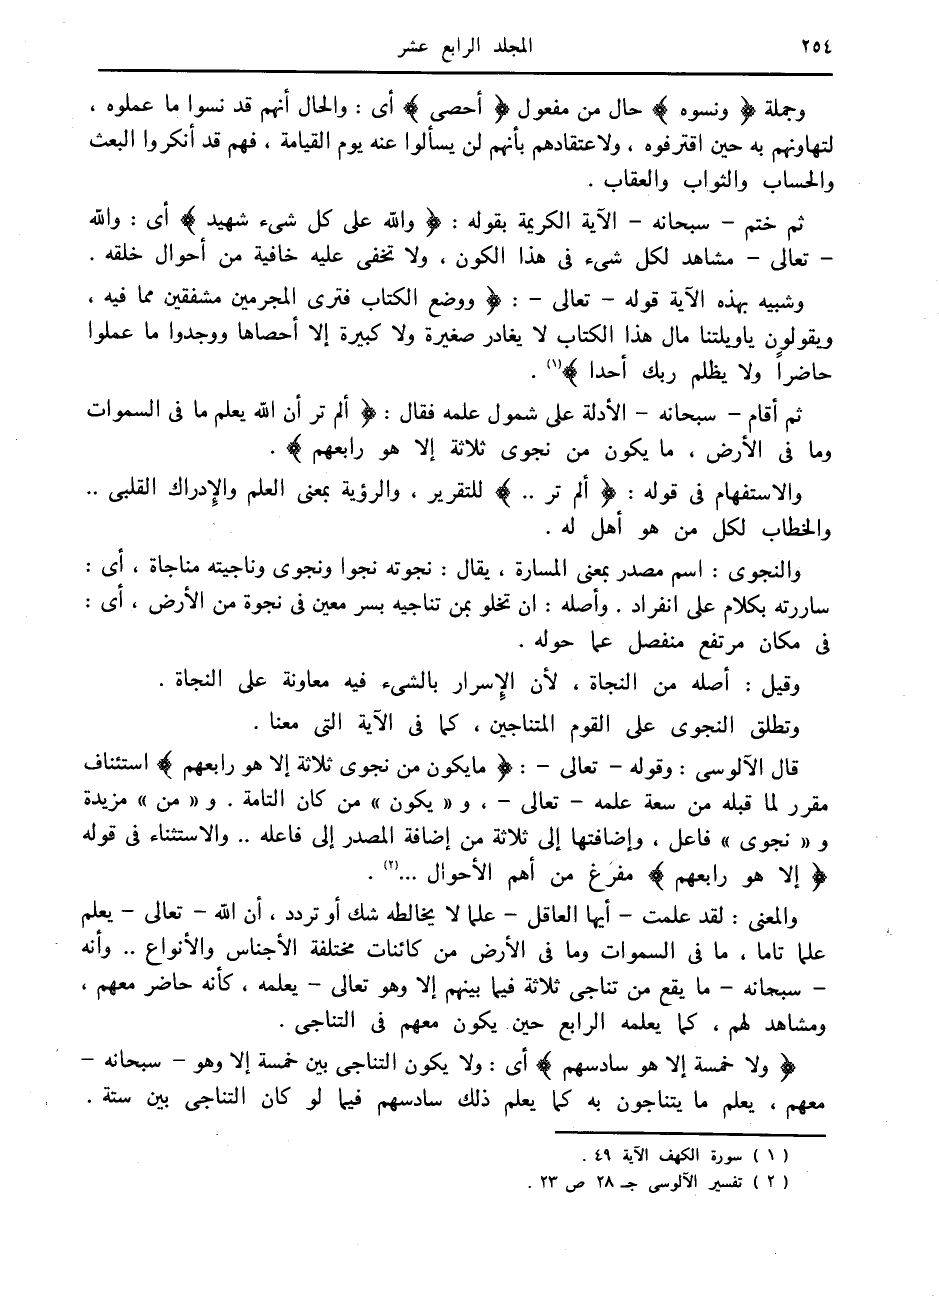 ٢٥٤ المجلد الرابع عشر
وجملة ﴿ ونسوه ﴾ حال من مفعول ﴿ أحصى ﴾ أى : والحال أنهم قد نسوا ما عملوه ،
لتهاونهم به حين اقترفوه ، ولاعتقادهم بأنهم لن يسألوا عنه يوم القيامة ، فهم قد أنكروا البعث
والحساب والثواب والعقاب .
ثم ختم – سبحانه – الآية الكريمة بقوله : ﴿ والله على كل شىء شهيد ﴾ أى : والله
– تعالى – مشاهد لكل شىء فى هذا الكون ، ولا تخفى عليه خافية من أحوال خلقه .
وشبيه بهذه الآية قوله – تعالى – : ﴿ ووضع الكتاب فترى المجرمين مشفقين مما فيه ،
ويقولون ياويلتنا مال هذا الكتاب لا يغادر صغيرة ولا كبيرة إلا أحصاها ووجدوا ما عملوا
حاضراً ولا يظلم ربك أحدا ﴾(١) .
ثم أقام – سبحانه – الأدلة على شمول علمه فقال : ﴿ ألم تر أن الله يعلم ما فى السموات
وما فى الأرض ، ما يكون من نجوى ثلاثة إلا هو رابعهم ﴾ .
والاستفهام فى قوله : ﴿ ألم تر .. ﴾ للتقرير ، والرؤية بمعنى العلم والإدراك القلبى ..
والخطاب لكل من هو أهل له .
والنجوى : اسم مصدر بمعنى المسارة ، يقال : نجوته نجوا ونجوى وناجيته مناجاة ، أى :
ساررته بكلام على انفراد . وأصله : ان تخلو بمن تناجيه بسر معين فى نجوة من الأرض ، أى :
فى مكان مرتفع منفصل عما حوله .
وقيل : أصله من النجاة ، لأن الإسرار بالشىء فيه معاونة على النجاة .
وتطلق النجوى على القوم المتناجين ، كما فى الآية التى معنا .
قال الآلوسى : وقوله – تعالى – : ﴿ مايكون من نجوى ثلاثة إلا هو رابعهم ﴾ استئناف
مقرر لما قبله من سعة علمه – تعالى – ، و « يكون » من كان التامة . و « من » مزيدة
و « نجوى » فاعل ، وإضافتها إلى ثلاثة من إضافة المصدر إلى فاعله .. والاستثناء فى قوله
﴿ إلا هو رابعهم ﴾ مفرغ من أهم الأحوال ...(٢) .
والمعنى : لقد علمت – أيها العاقل – علما لا يخالطه شك أو تردد ، أن الله – تعالى – يعلم
علما تاما ، ما فى السموات وما فى الأرض من كائنات مختلفة الأجناس والأنواع .. وأنه
– سبحانه – ما يقع من تناجى ثلاثة فيما بينهم إلا وهو تعالى – يعلمه ، كأنه حاضر معهم ،
ومشاهد لهم ، كما يعلمه الرابع حين يكون معهم فى التناجى .
﴿ ولا خمسة إلا هو سادسهم ﴾ أى : ولا يكون التناجى بين خمسة إلا وهو – سبحانه –
معهم ، يعلم ما يتناجون به كما يعلم ذلك سادسهم فيما لو كان التناجى بين ستة .
( ١ ) سورة الكهف الآية ٤٩ .
( ٢ ) تفسير الآلوسى جـ ٢٨ ص ٢٣ .